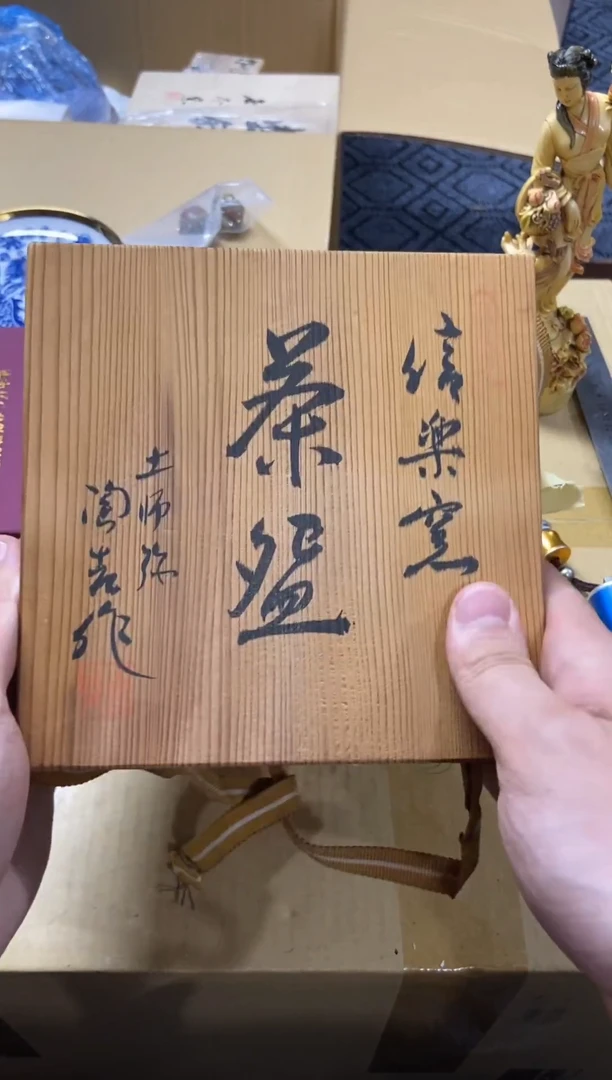 信楽窯
茶盌
土師弥
陶吉作